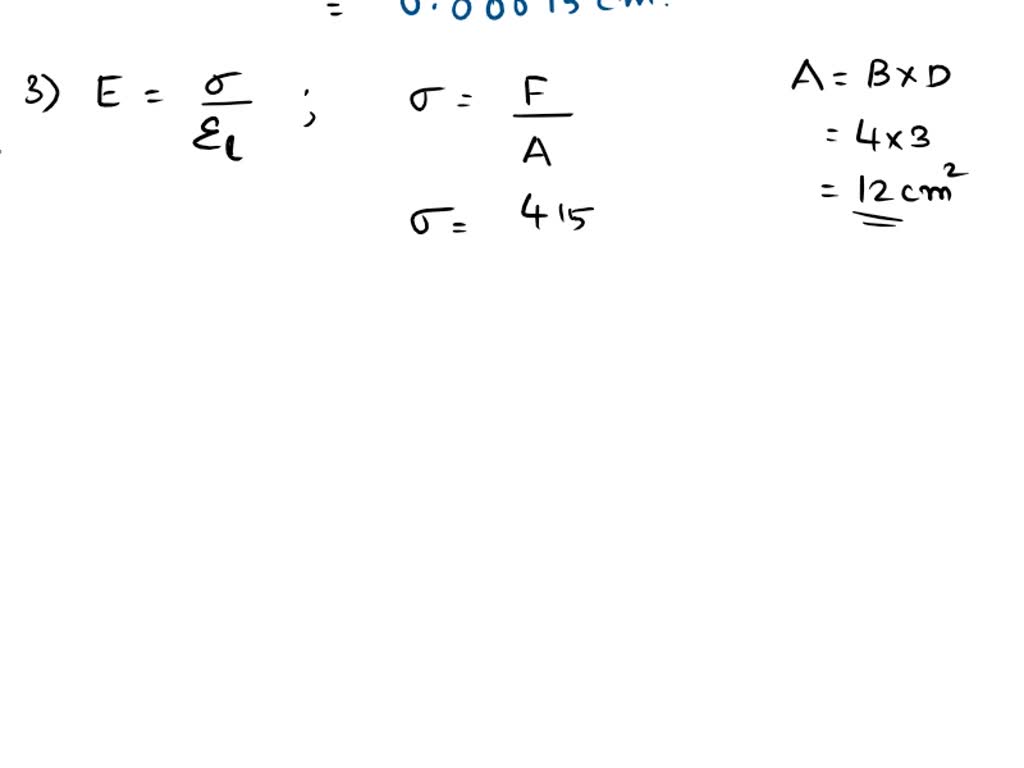 =
3) E = σ / ε_l ; σ = F / A
σ = 415
A = B × D
= 4 × 3
= 12 cm²